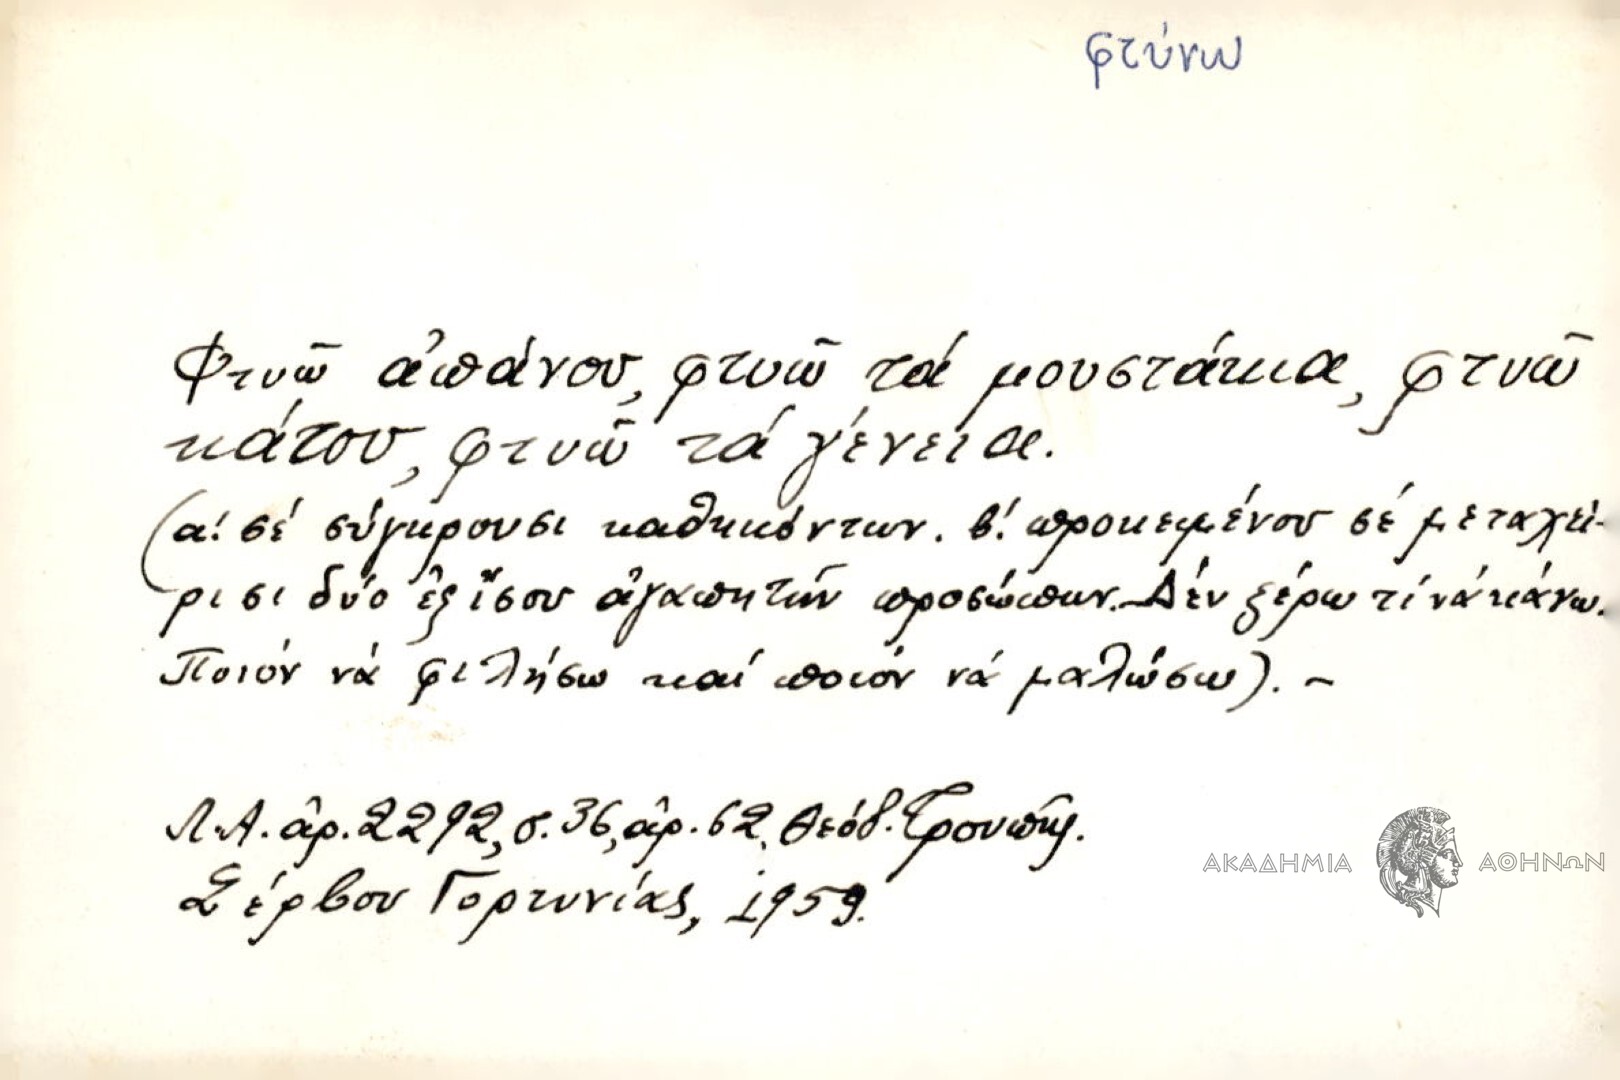 φτύνω
Φτυῶ ἀπάνου, φτυῶ τά μουστάκια, φτυῶ
κάτου, φτυῶ τά γένεια.
(α! σέ σύγκρουσι καθηκόντων. β! προκειμένου σέ μεταχεί-
ρισι δύο ἐξ ἴσου ἀγαπητῶν προσώπων.-Δέν ξέρω τί νά κάνω.
Ποιόν νά φιλήσω καί ποιόν νά μαλώσω). -
Λ.Α. ἀρ. 2292, σ. 36, ἀρ. 62, Θεόδ. Τρουπῆς.
Σέρβου Γορτυνίας, 1959.
ΑΚΑΔΗΜΙΑ ΑΘΗΝΩΝ